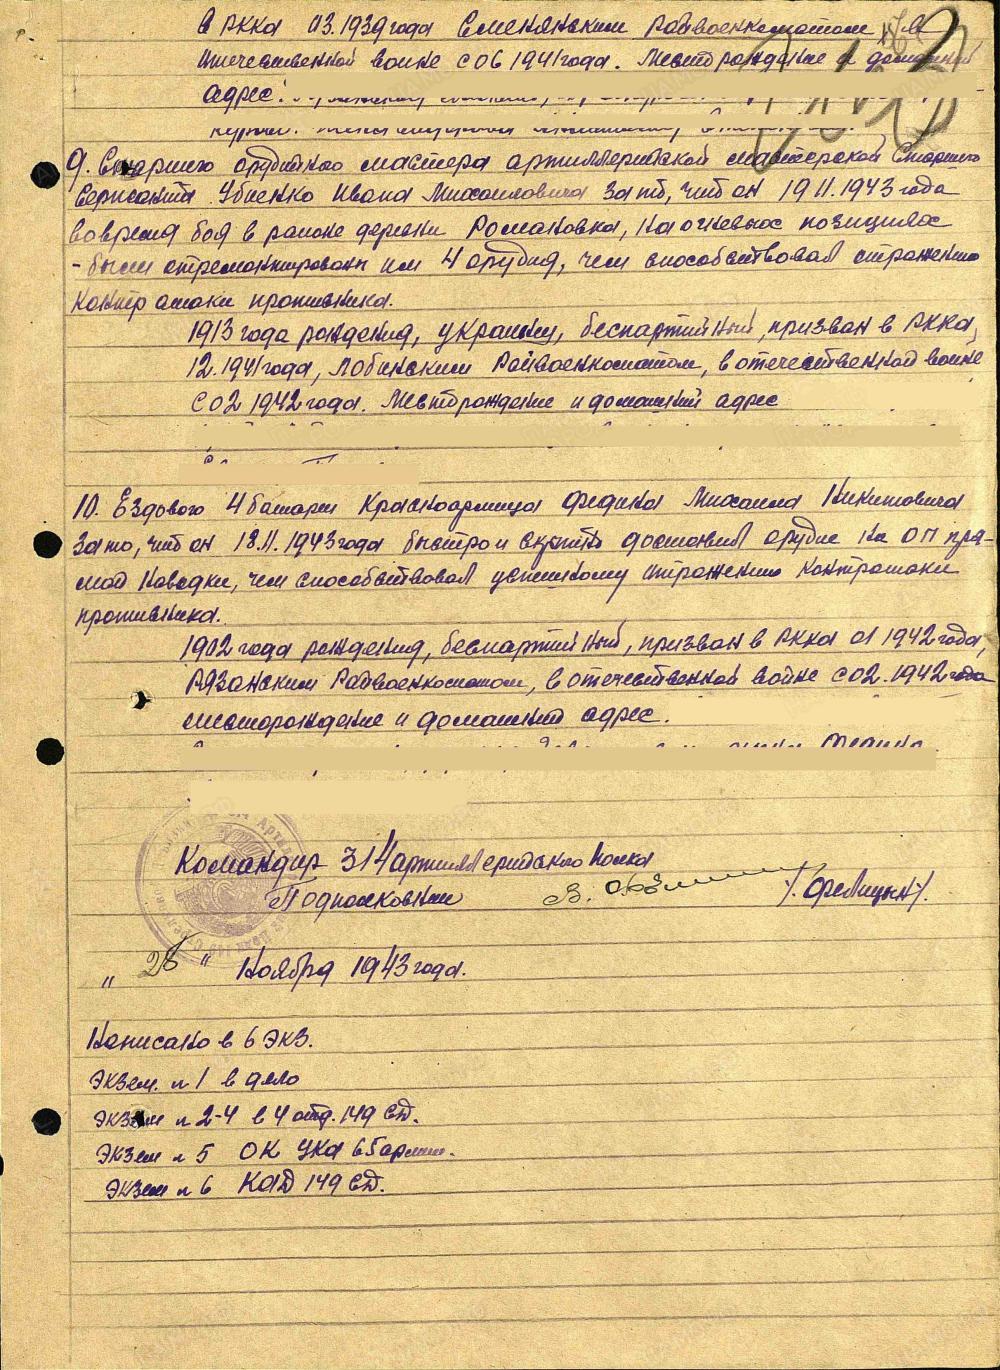 в РККА 03.1939 года Райвоенкоматом, в
отечественной войне с 06 1941 года. Местрождение и домашний
адрес:
9. Старшего орудийного мастера артиллерийской мастерской Старшего
Сержанта Ивана Михайловича за то, что он 19.11.1943 года
во время боя в районе деревни Романовка, на огневых позициях
- были отремонтированы им 4 орудия, чем способствовал отражению
контратаки противника.
1913 года рождения, украинец, беспартийный, призван в РККА
12.1941 года, Райвоенкоматом, в отечественной войне
с 02 1942 года. Местрождение и домашний адрес
10. Ездового 4 батареи Красноармейца Федина Михаила Никитовича
за то, что он 18.11.1943 года быстро и скрытно доставил орудие на ОП пря-
мой наводки, чем способствовал успешному отражению контратаки
противника.
1902 года рождения, беспартийный, призван в РККА 01 1942 года,
Рязанским Райвоенкоматом, в отечественной войне с 02.1942 года
месторождение и домашний адрес.
Командир 314 артиллерийского полка
Подполковник /Фелицын/.
„26" Ноября 1943 года.
Написано в 6 экз.
Экзем. н 1 в дело
Экзем н 2-4 в 4 отд. 149 СД.
Экзем н 5 ОК УКА 65 армии.
Экзем н 6 КАД 149 СД.